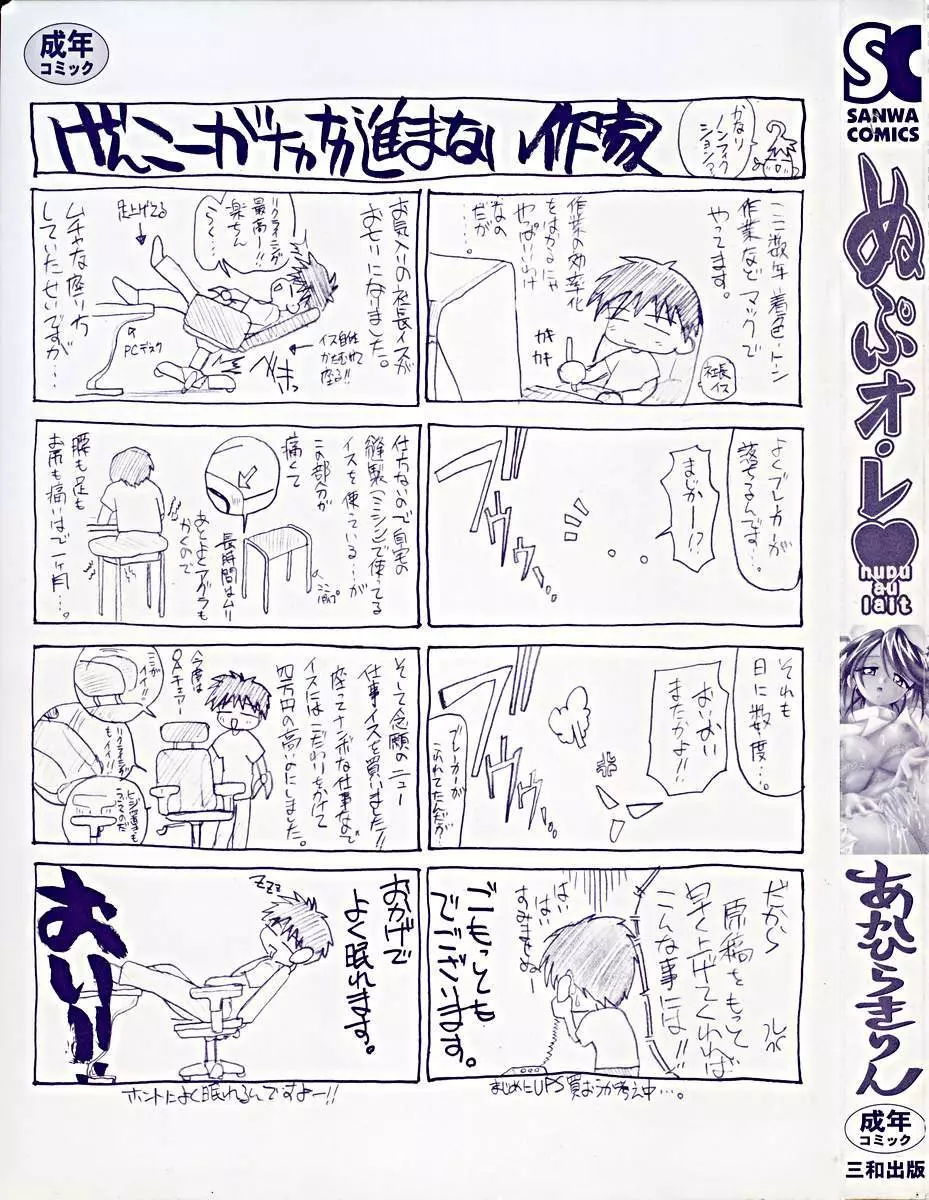 成年
コミック
げんこーがナカナカ進まない作家
かなり
ノンフィク
ションマンガ
ここ数年着色・トン
作業など マックで
やってます。
作業の効率化
をはかるにゃ
やっぱいいわけ
なの
だが
……
カキ
カキ
社長
イス
よくブレーカーが
落ちるんです…
まじかー!?
ブッ
それも
日に数度…
おいおい
またかよ!!
ブレーカーが
こわれてたんだが…
だから
原稿をもって
早く上げてくれれば
こんな事には!!
はい
はい
すみません
ごもっとも
でございます。
まじめにUPS買おうか考え中…。
お気入りの社長イスが
おせんになりました。
リクライニングが
最高ー!!
楽ちん
足上げてる
PCデスク
イス自体
かたむけて
座る!!
ムチャな座り方
していたせいですが…
仕方ないので自宅の
縫製(ミシン)で使ってる
イスを使っている…が
この部分が
痛くて
長時間はムリ
あとよくアグラも
かくので
腰も足も
お尻も痛いはで一ヶ月…。
そして念願のニュー
仕事イスを買いました!!
座ってナンボな仕事なので
イスにはこだわりをかけて
四万円の高いにしました。
今度は
OAチェアー
ここが
イイ!!
リクライニングが
もイイ!!
ヒジ置きも
ZZZ
おかげで
よく眠れます。
おい!!
ホントによく眠れるんですよー!!
SC
SANWA
COMICS
ぬぷオ・レ
nupu
au
lait
あかひらきりん
成年
コミック
三和出版